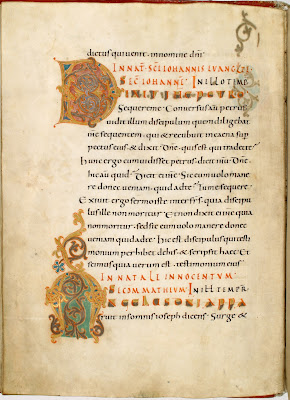 dictus qui uenit · innomine dñi
IN NAT SCI IOHANNIS EUANGELI
SEC IOHANNE IN ILLO TEMP
Sequere me · Conuersus aut petrus
uidit illum discipulum quem diligebat
sequentem · qui & recubuit in caena sup
pectus eius & dixit Dñe · quis est qui tradet te
hunc ergo cum uidisset petrus dixit Dñe
hic aut quid Dicit ei Sic eum uolo mane
re donec ueniam quid ad te me sequere
Exiuit ergo sermo iste inter frs · quia discip
ulus ille non moritur Et non dixit ei quia
non moritur · sed sic eum uolo manere donec
ueniam quid ad te hic est discipulus qui testi
monium perhibet de his & scripsit haec Et
scimus quia uerum est testimonium eius
IN NATALI INNOCENTUM
MATHEUM IN ILL TEMPR
ruit in somnis ioseph dicens Surge &